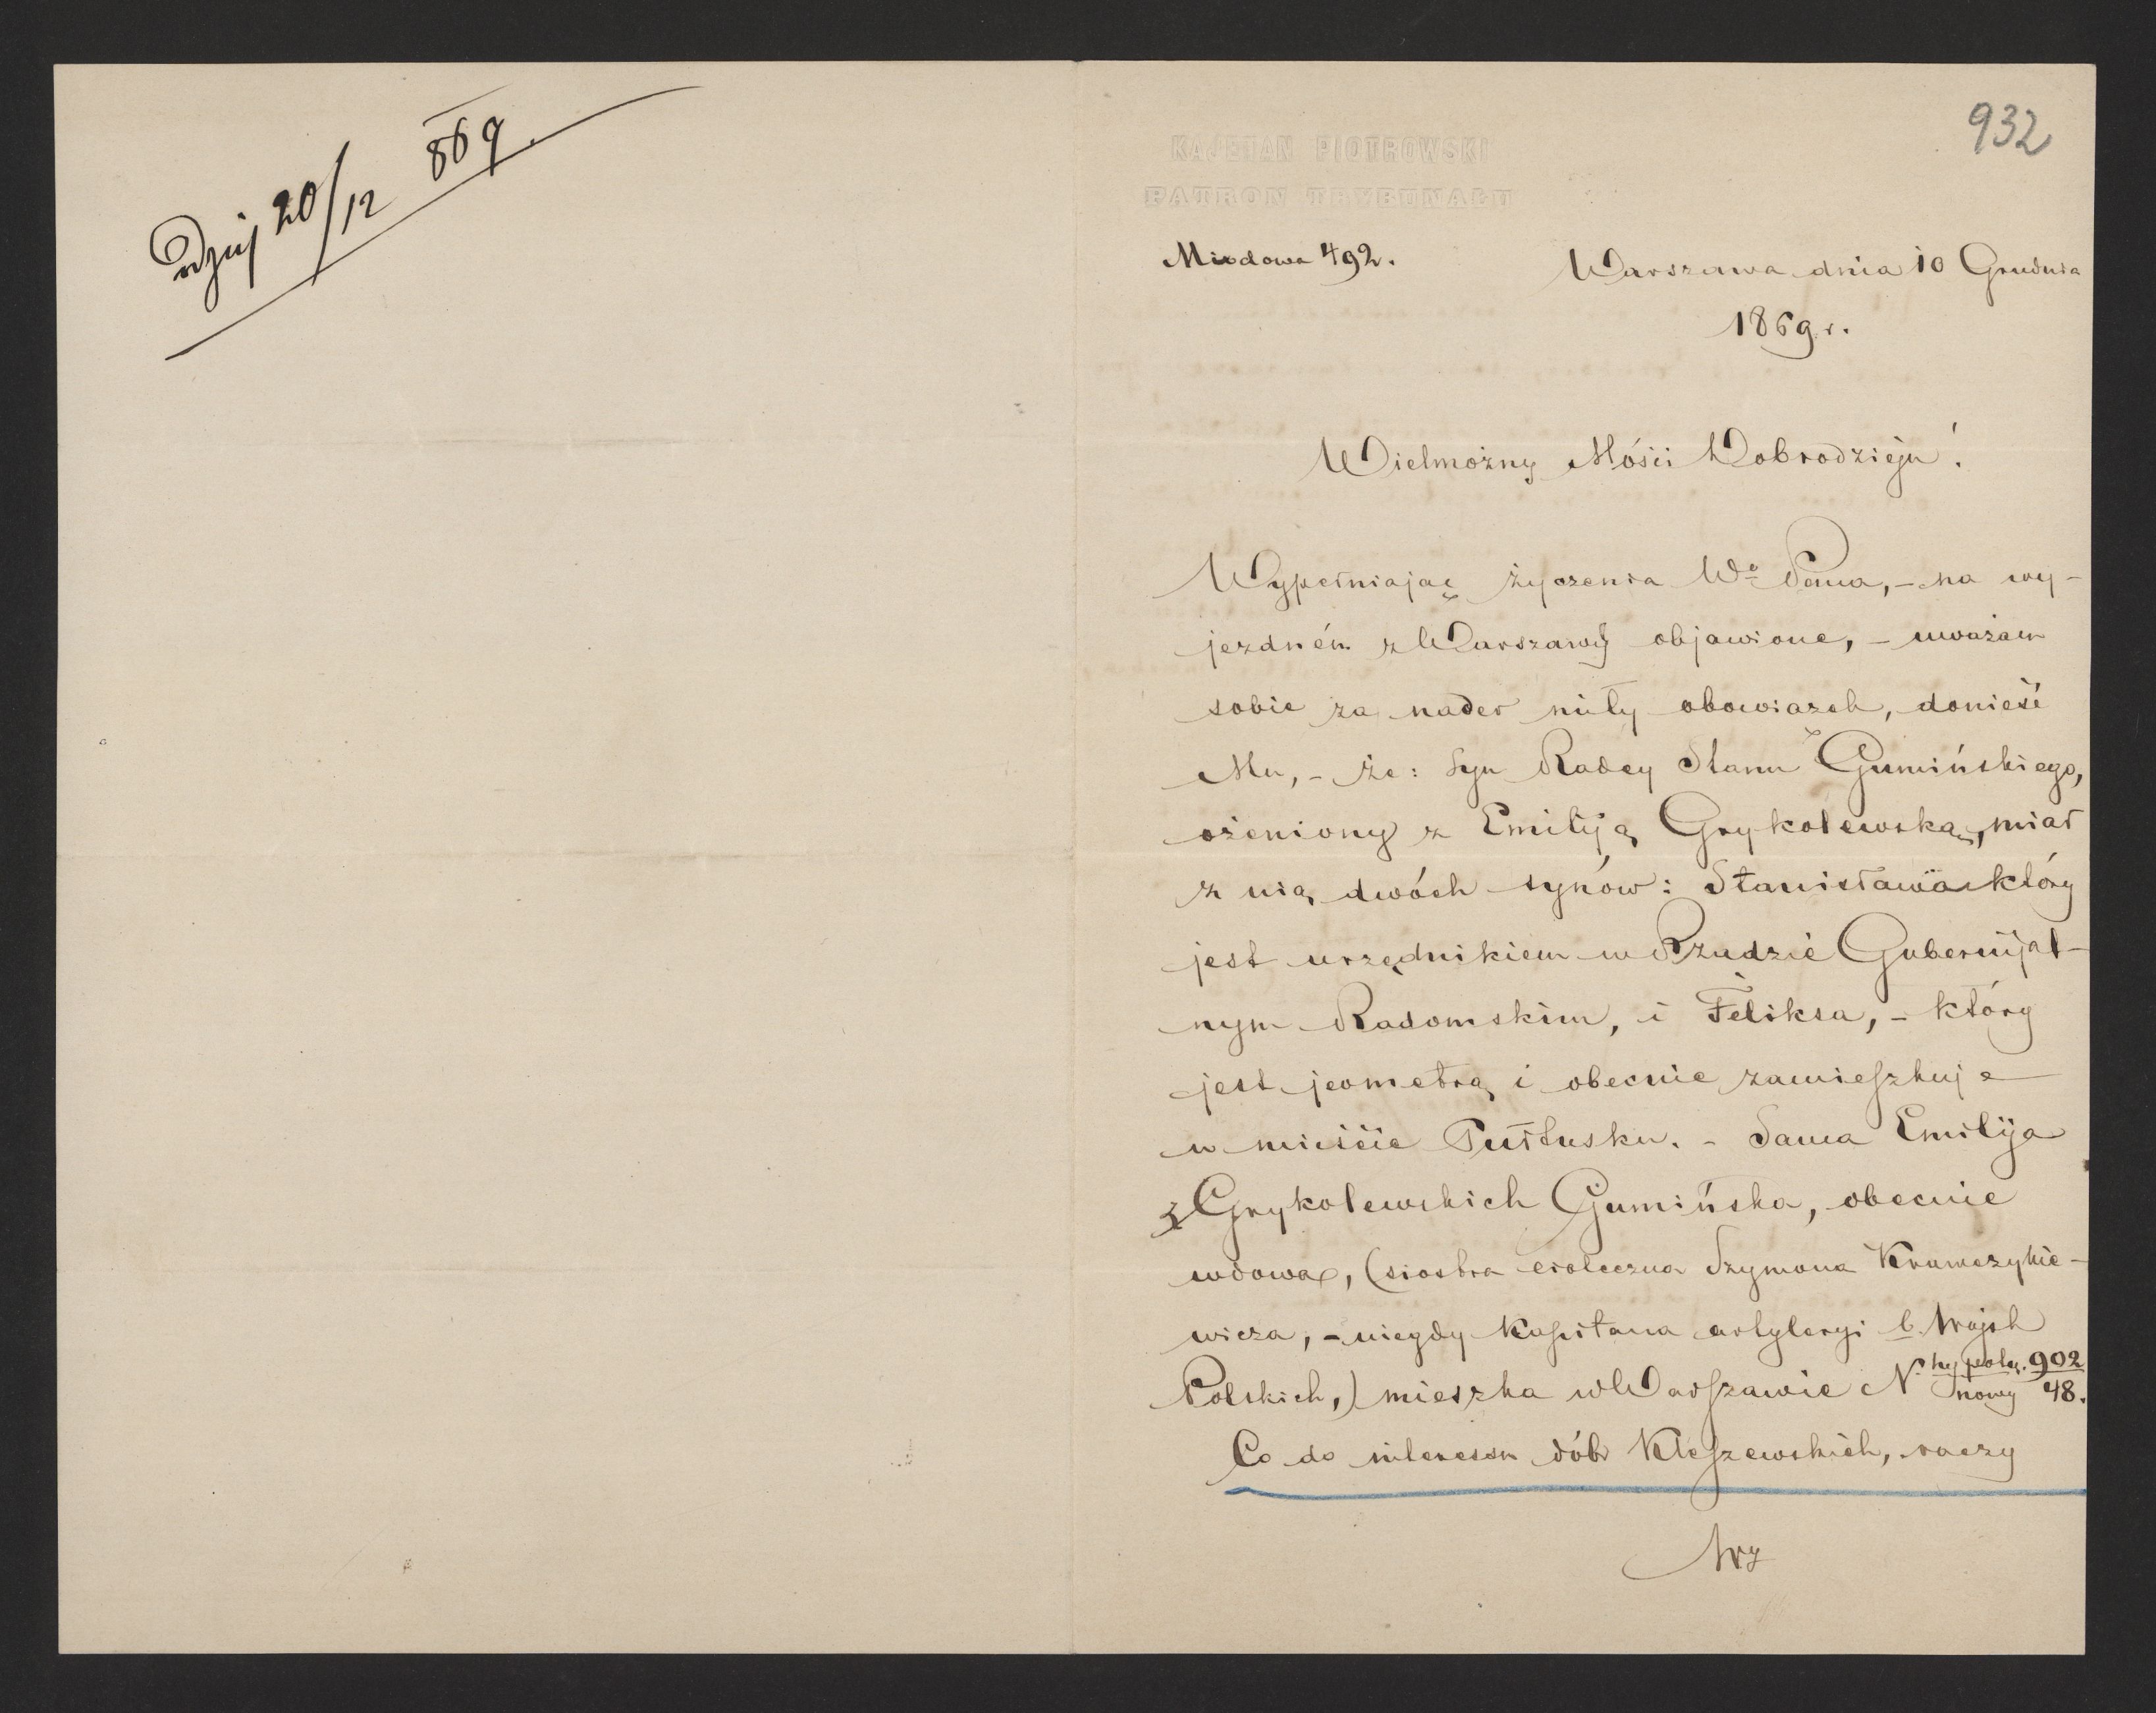 20/12 869.
932
KAJETAN PIOTROWSKI
PATRON TRYBUNAŁU
Miodowa 492.
Warszawa dnia 10 Grudnia
1869 r.
Wielmożny Mości Dobrodzieju!
Wypełniając życzenia We Pana, - na wy-
jezdném z Warszawy objawione, - uważam
sobie za nader miły obowiązek, donieść
Mu, - że: Syn Radcy Stanu Gumińskiego,
ożeniony z Emiliją Grykolewską, miał
z nią dwóch synów: Stanisława który
jest urzędnikiem w Rządzie Gubernijal-
nym Radomskim, i Feliksa, - który
jest jeometrą i obecnie zamieszkuje
w mieście Pułtusku. - Sama Emilija
z Grykolewskich Gumińska, obecnie
wdowa, (siostra cioteczna Szymona Krawczykie-
wicza, - niegdy Kapitana artyleryi b. Wojsk
Polskich,) mieszka w Warszawie N. hypotecz. 902
nowy 48.
Co do interesu dóbr Kleszewskich, raczy